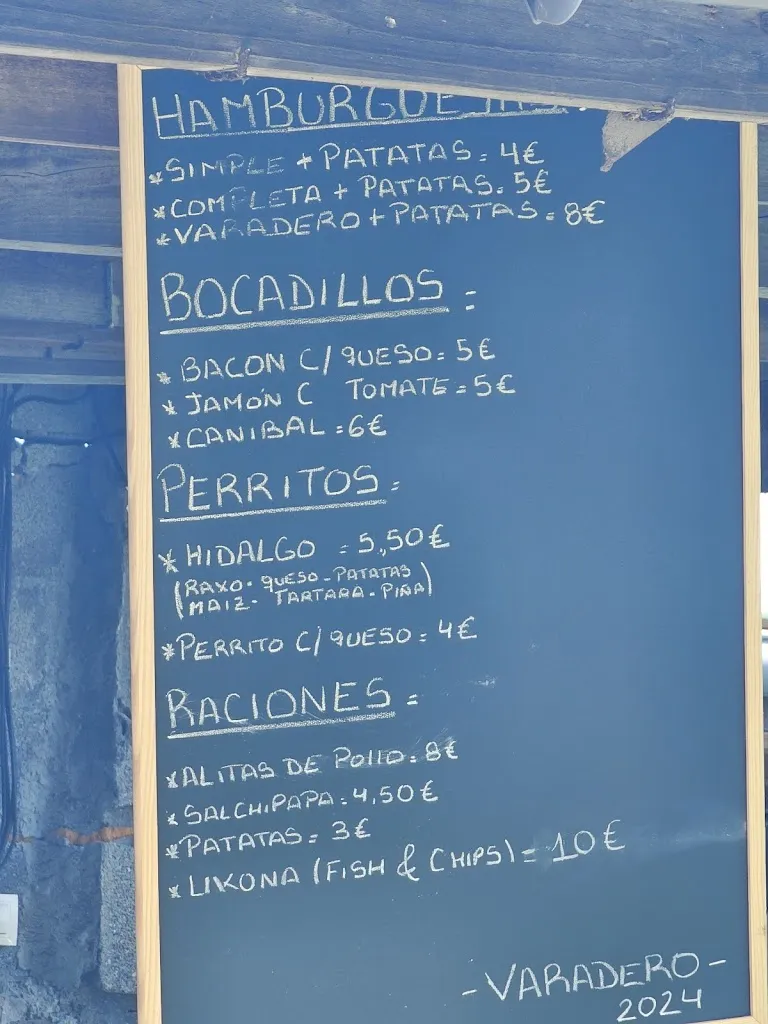 HAMBURGUE
*SIMPLE + PATATAS = 4€
*COMPLETA + PATATAS = 5€
*VARADERO + PATATAS = 8€
BOCADILLOS =
* BACON C/ QUESO = 5€
* JAMÓN C TOMATE = 5€
* CANIBAL = 6€
PERRITOS =
* HIDALGO = 5,50€
(RAXO - QUESO - PATATAS
MAIZ - TARTARA - PIÑA)
*PERRITO C/ QUESO = 4€
RACIONES =
*ALITAS DE POllO = 8€
*SALCHIPAPA = 4,50€
*PATATAS = 3€
* LIKONA (FISH & CHIPS) = 10€
- VARADERO -
2024